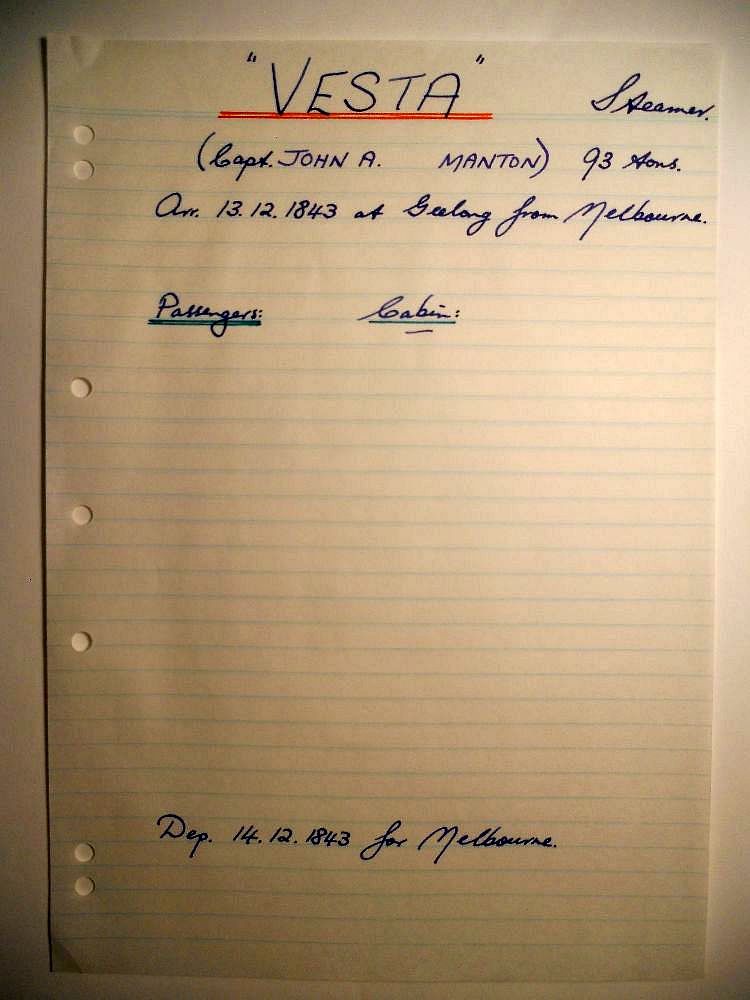 "VESTA" Steamer.
(Capt. JOHN A. MANTON) 93 tons.
Arr. 13.12.1843 at Geelong from Melbourne.
Passengers: Cabin:
Dep. 14.12.1843 for Melbourne.